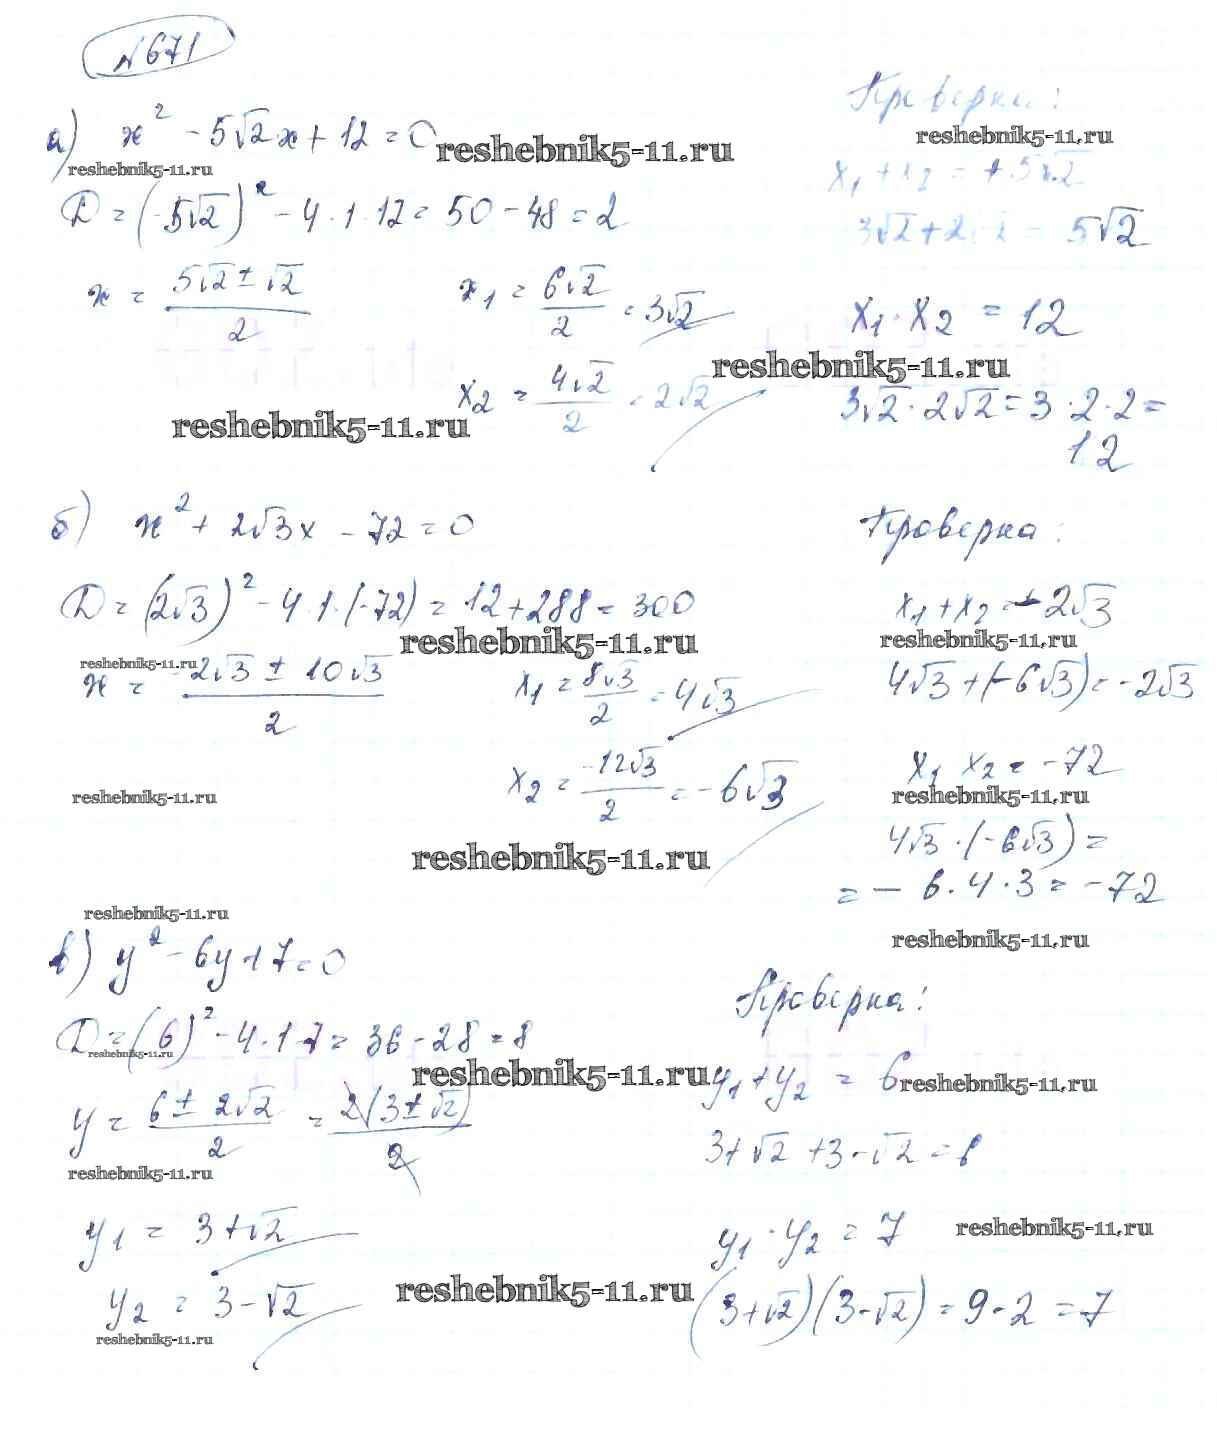 №671
а) x² - 5√2x + 12 = 0
reshebnik5-11.ru
reshebnik5-11.ru
D = (-5√2)² - 4·1·12 = 50 - 48 = 2
x = (5√2 ± √2)/2
x₁ = 6√2/2 = 3√2
x₂ = 4√2/2 = 2√2
reshebnik5-11.ru
Проверка:
reshebnik5-11.ru
x₁ + x₂ = +5√2
3√2 + 2√2 = 5√2
x₁·x₂ = 12
reshebnik5-11.ru
3√2·2√2 = 3·2·2 =
12
б) x² + 2√3x - 72 = 0
D = (2√3)² - 4·1·(-72) = 12 + 288 = 300
reshebnik5-11.ru
reshebnik5-11.ru
x = (-2√3 ± 10√3)/2
x₁ = 8√3/2 = 4√3
x₂ = -12√3/2 = -6√3
reshebnik5-11.ru
reshebnik5-11.ru
Проверка:
x₁ + x₂ = -2√3
reshebnik5-11.ru
4√3 + (-6√3) = -2√3
x₁ x₂ = -72
reshebnik5-11.ru
4√3·(-6√3) =
= - 6·4·3 = -72
reshebnik5-11.ru
reshebnik5-11.ru
в) y² - 6y + 7 = 0
D = (6)² - 4·1·7 = 36 - 28 = 8
reshebnik5-11.ru
reshebnik5-11.ru
y = (6 ± 2√2)/2 = 2(3 ± √2)/2
reshebnik5-11.ru
y₁ = 3 + √2
y₂ = 3 - √2
reshebnik5-11.ru
reshebnik5-11.ru
Проверка:
y₁ + y₂ = 6
reshebnik5-11.ru
3 + √2 + 3 - √2 = 6
y₁·y₂ = 7
reshebnik5-11.ru
(3 + √2)(3 - √2) = 9 - 2 = 7